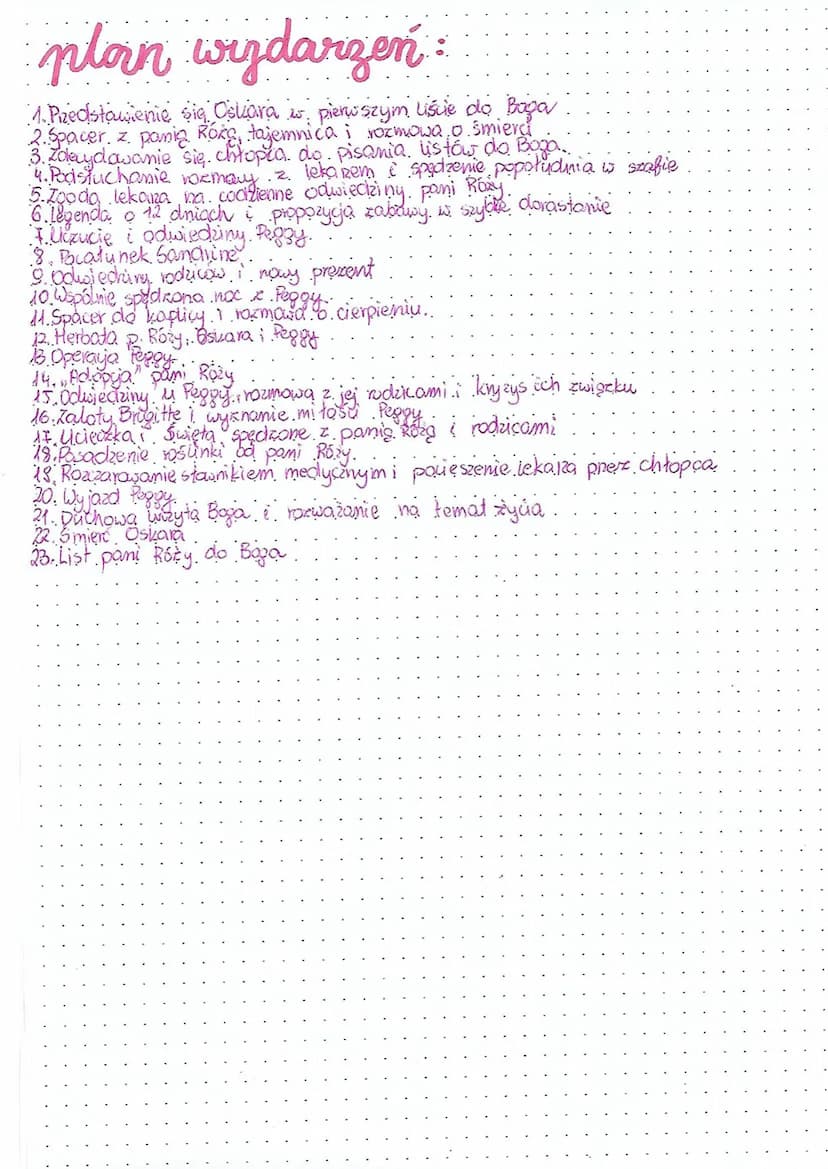 plan wydarzeń:
1. Przedstawienie się Oskara w pierwszym liście do Boga
2. Spacer z panią Różą, tajemnica i rozmowa o śmierci
3. Zdecydowanie się chłopca do pisania listów do Boga.
4. Podsłuchanie rozmowy z lekarzem i spędzenie popołudnia w szafie
5. Zgoda lekarza na codzienne odwiedziny pani Róży.
6. Legenda o 12 dniach i propozycja zabawy w szybkie dorastanie
7. Uczucie i odwiedziny Peggy.
8. Pocałunek Sandrine
9. Odwiedziny rodziców i nowy prezent
10. Wspólnie spędzona noc z Peggy.
11. Spacer do kaplicy i rozmowa o cierpieniu.
12. Herbata p. Róży, Oskara i Peggy
13. Operacja Peggy.
14. „Adopcja" pani Róży
15. Odwiedziny u Peggy, rozmową z jej rodzicami i kryzys ich związku
16. Zaloty Brigitte i wyznanie miłości Peggy
17. Ucieczka i Święta spędzone z panią Różą i rodzicami
18. Posadzenie roślinki od pani Róży.
19. Rozczarowanie słownikiem medycznym i pocieszenie lekarza przez chłopca
20. Wyjazd Peggy
21. Duchowa wizyta Boga i rozważanie na temat życia
22. Śmierć Oskara
23. List pani Róży do Boga